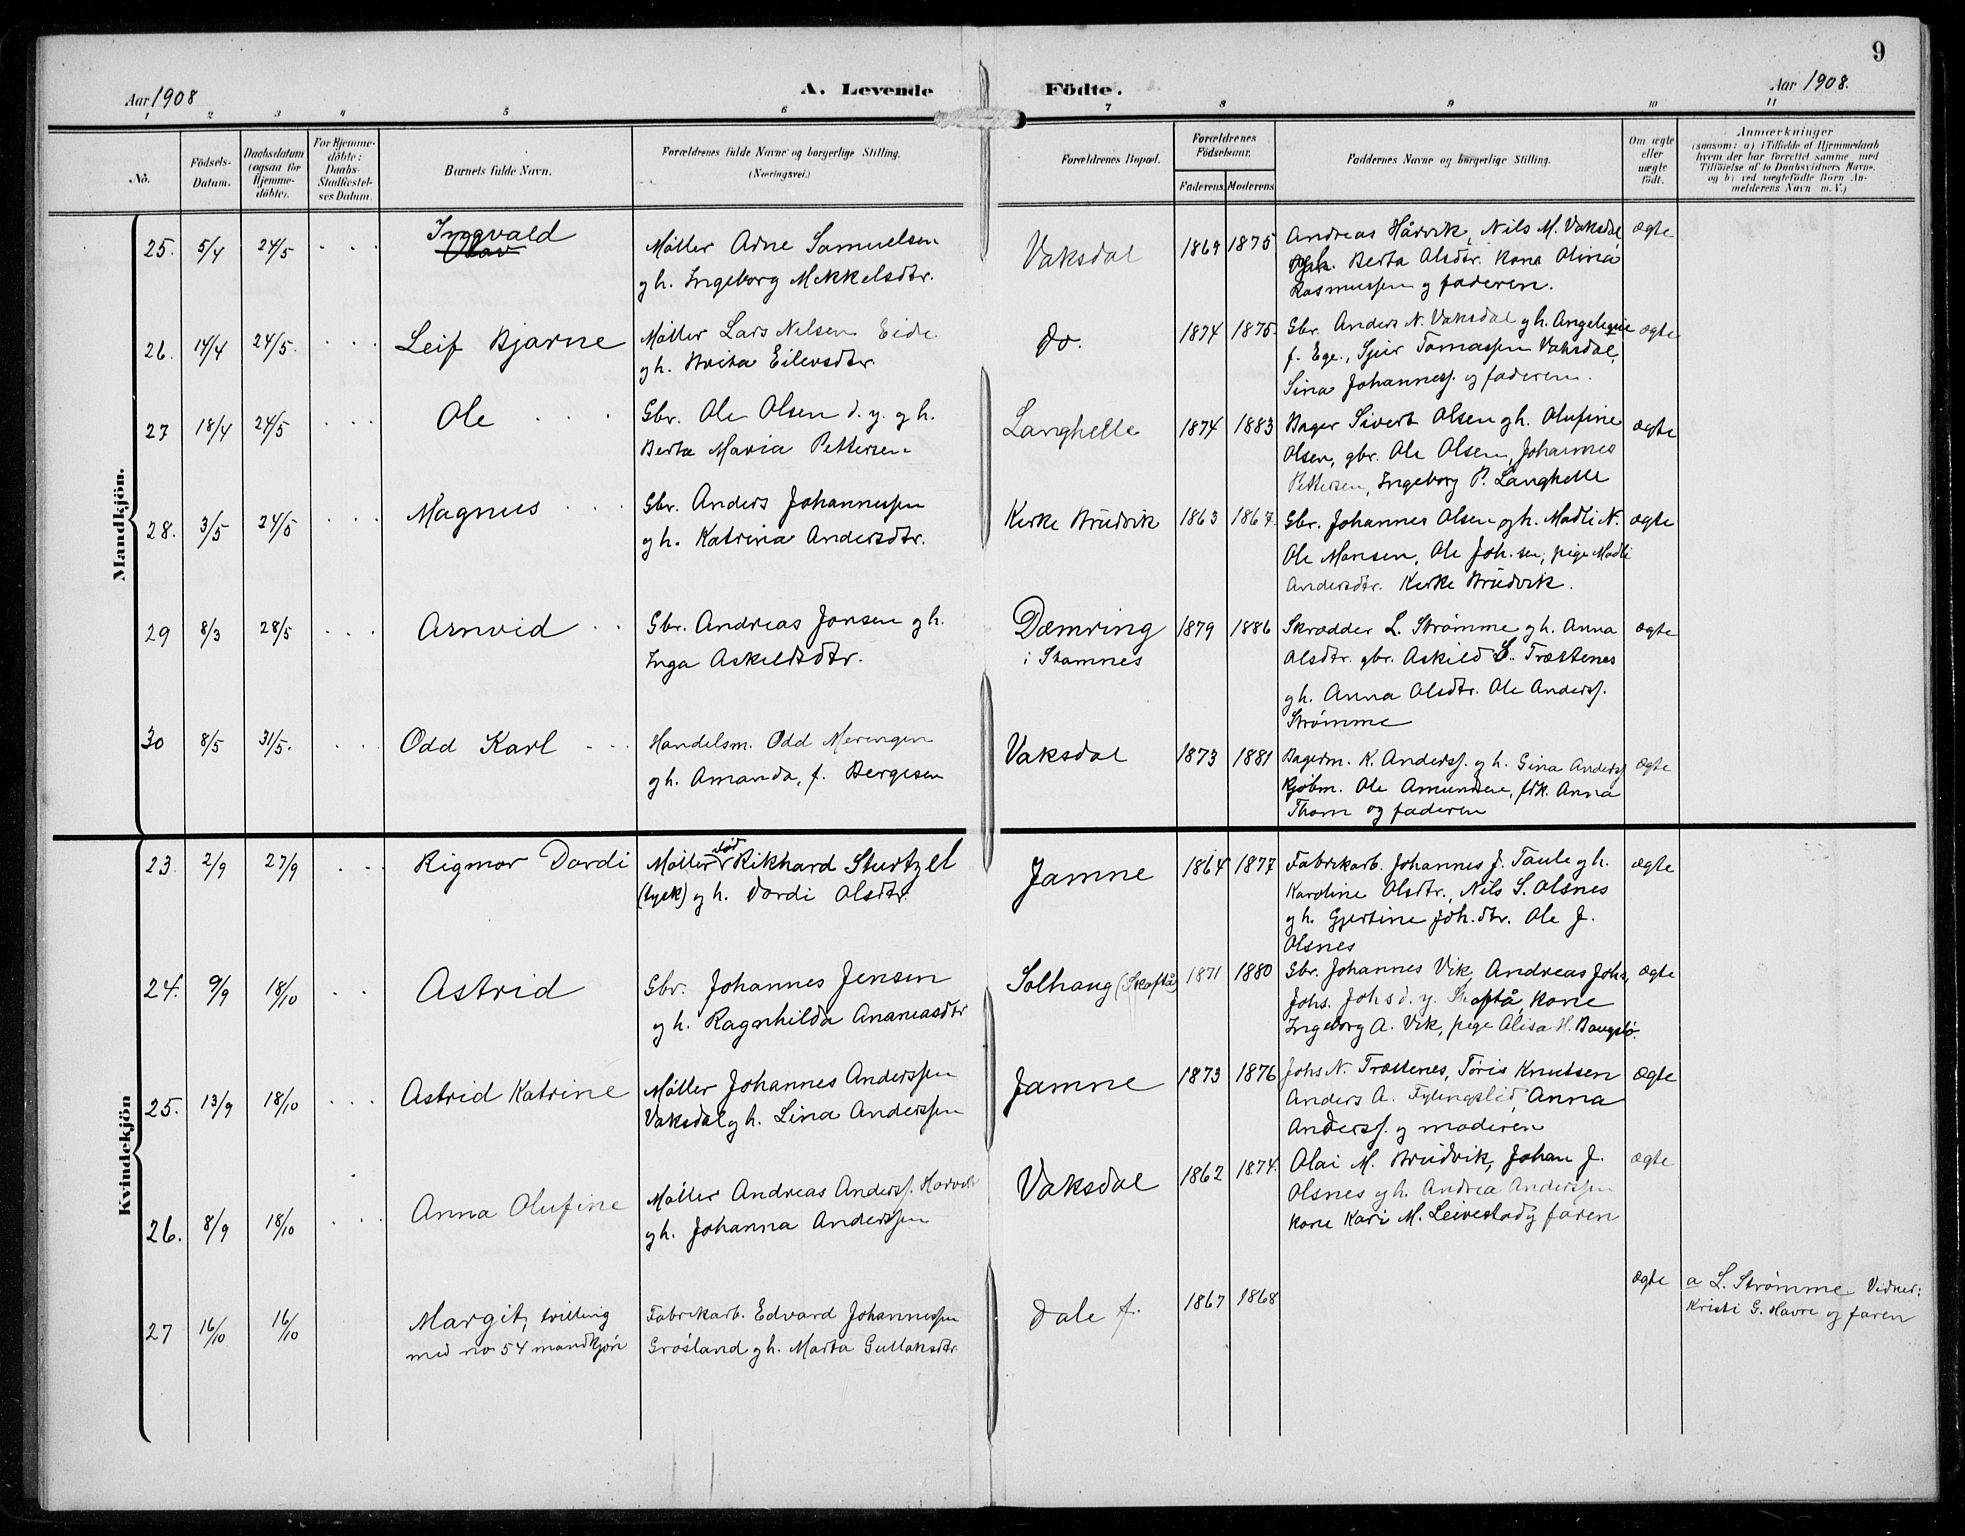 9
Aar 1908
A. Levende
Födte.
Aar 1908.
1 2 3 4 5 6 7 8 9 10 11
No.
Födsels-Datum.
Daabsdatum (ogsaa for Hjemme-döbte).
For Hjemme-döbte: Daabs-Stadfæstel-ses Datum.
Barnets fulde Navn.
Forældrenes fulde Navne og borgerlige Stilling. (Næringsvei.)
Forældrenes Bopæl.
Forældrenes Födselsaar.
Faderens. Moderens
Faddernes Navne og borgerlige Stilling.
Om ægte eller uægte födt.
Anmærkninger
(saasom: a) i Tilfælde af Hjemmedaab
hvem der har forrettet samme med
Tilföielse af to Daabsvidners Navne,
og b) ved uægtefödte Börn An-
melderens Navn m. V.)
Mandkjön.
25. 5/4 24/5 Ingvald
Olav
Møller Arne Samuelsen
gh. Ingeborg Mikkelsdtr.
Vaksdal 1869 1875
Andreas Hårvik, Nils M. Vaksdal
gh. Berta Olsdtr. Kona Olina
Rasmussen og faderen.
ægte
26. 14/4 24/5. Leif Bjarne
Møller Lars Nilsen Eide
gh. Brita Eilevsdtr.
do. 1874 1875.
Gbr. Anders N. Vaksdal gh. Angelique
f. Ege., Sjur Tomassen Vaksdal,
Sina Johanness. og faderen.
ægte
27 18/4 24/5 Ole
Gbr. Ole Olsen d. y. gh.
Berta Maria Pettersen
Langhelle 1874 1883
Bager Sivert Olsen gh. Olufine
Olsen, gbr. Ole Olsen, Johannes
Pettersen, Ingeborg P. Langhelle
ægte
28. 3/5 24/5 Magnus
Gbr. Anders Johannessen
gh. Katrina Andersdtr.
Kirke Brudvik 1863 1867.
Gbr. Johannes Olsen gh. Madli N.
Ole Monsen, Ole Joh.sen, pige Madli
Andersdtr. Kirke Brudvik.
ægte
29 8/3 28/5 Arnvid
Gbr. Andreas Jonsen gh.
Inga Askildsdtr.
Dæmring
i Stamnes
1879 1886
Skrædder L. Strømme gh. Anna
Olsdtr. gbr. Askild L. Trættenes
gh. Anna Olsdtr. Ole Anderss.
Strømme
ægte
30 8/5 31/5. Odd Karl
Handelsm. Odd Meringen
gh. Amanda, f. Bergesen
Vaksdal 1873 1881
Bagerm. K. Anderss. gh. Gina Anderss
Kjøbm. Ole Amundsen, frk. Anna
Thom og faderen
ægte
Kvindekjön
23. 2/9 27/9 Rigmor Dordi
Møller Rikhard Sturtzel
(tysk) gh. Dordi Olsdtr.
Jamne 1864 1877
Fabrikarb. Johannes J. Taule gh.
Karoline Olsdtr., Nils S. Olsnes
gh. Gjertine Joh.dtr. Ole J.
Olsnes
ægte
24. 9/9 18/10 Astrid
Gbr. Johannes Jensen
gh. Ragnhilda Ananiasdtr
Solhaug (Skaftå) 1871 1880
Gbr. Johannes Vik, Andreas Johs,
Johs. Johs d. y. Skaftå, kone
Ingeborg A. Vik, pige Alisa H. Baugstø.
ægte
25. 13/9 18/10 Astrid Katrine
Møller Johannes Anderssen
Vaksdal gh. Lina Anderssen
Jamne 1873 1876
Johs N. Trættenes, Tøris Knutsen
Anders A. Fylingslid, Anna
Anderss. og moderen
ægte
26. 8/9 18/10 Anna Olufine
Møller Andreas Anderss. Horvik
gh. Johanna Anderssen
Vaksdal 1862 1874.
Olai M. Brudvik, Johan J.
Olsnes gh. Andrea Anderssen
kone Kari M. Leirestad g faren
ægte
27 16/10 16/10 Margit, tvilling
med no 54 mandkjøn
Fabrikarb. Edvard Johannessen
Grøsland gh. Marta Gullaksdtr.
Dale f. 1867 1868
ægte
a L. Strømme Vidner:
Kristi G. Havre og faren